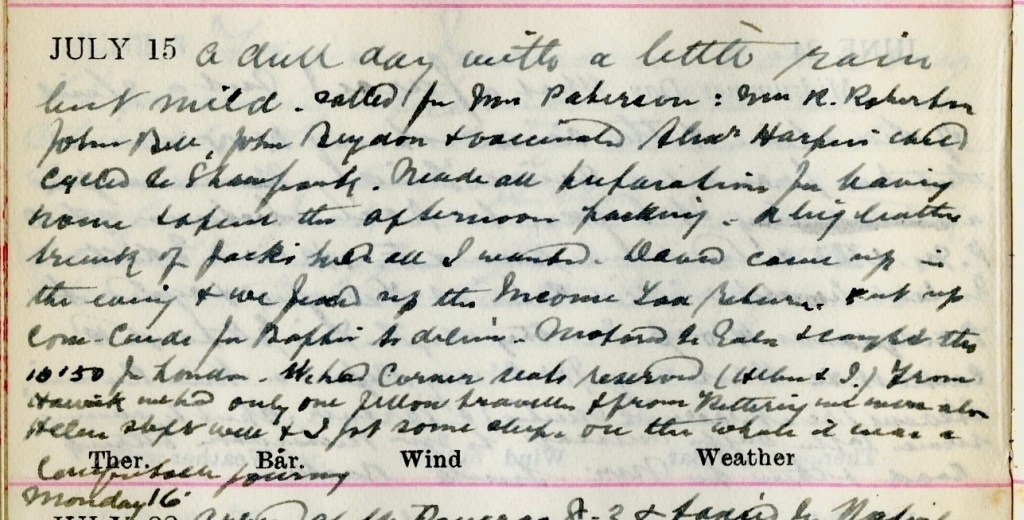 JULY 15 a dull day with a little rain
but mild. called for Mrs Paterson: Mrs R. Roberton
John Bell, John Brydon & vaccinated Alexr Harper's child
Cycled to Shawpark. Made all preparations for leaving
home & spent the afternoon packing. A big leather
trunk of Jack's held all I wanted. David came up in
the evening & we fixed up the Income Tax return.
for to deliver. Motored to & caught the
10.50 for London. We had Corner seats reserved (Helen & I.) From
Hawick we had only one fellow traveller & from Kettering we were alone
Helen slept well & I got some sleep. On the whole it was a
Ther. Bar. Wind Weather
comfortable journey
Monday 16